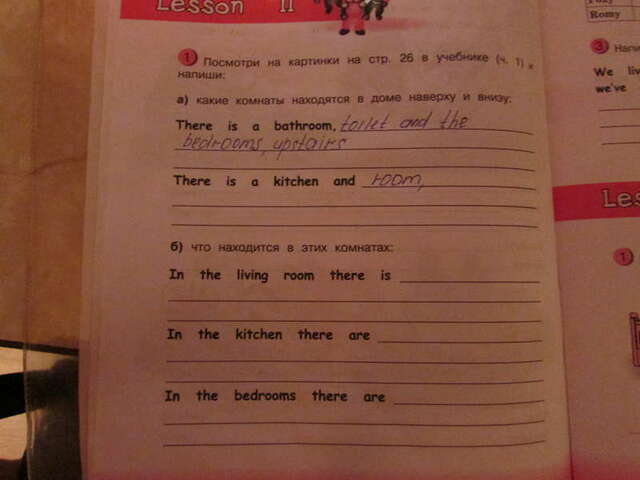 Lesson II
1 Посмотри на картинки на стр. 26 в учебнике (ч. 1) и
напиши:
а) какие комнаты находятся в доме наверху и внизу:
There is a bathroom, toilet and the
bedrooms, upstairs
There is a kitchen and room,
б) что находится в этих комнатах:
In the living room there is
In the kitchen there are
In the bedrooms there are
Romy
3 Напи
We liv
we've
Les
1